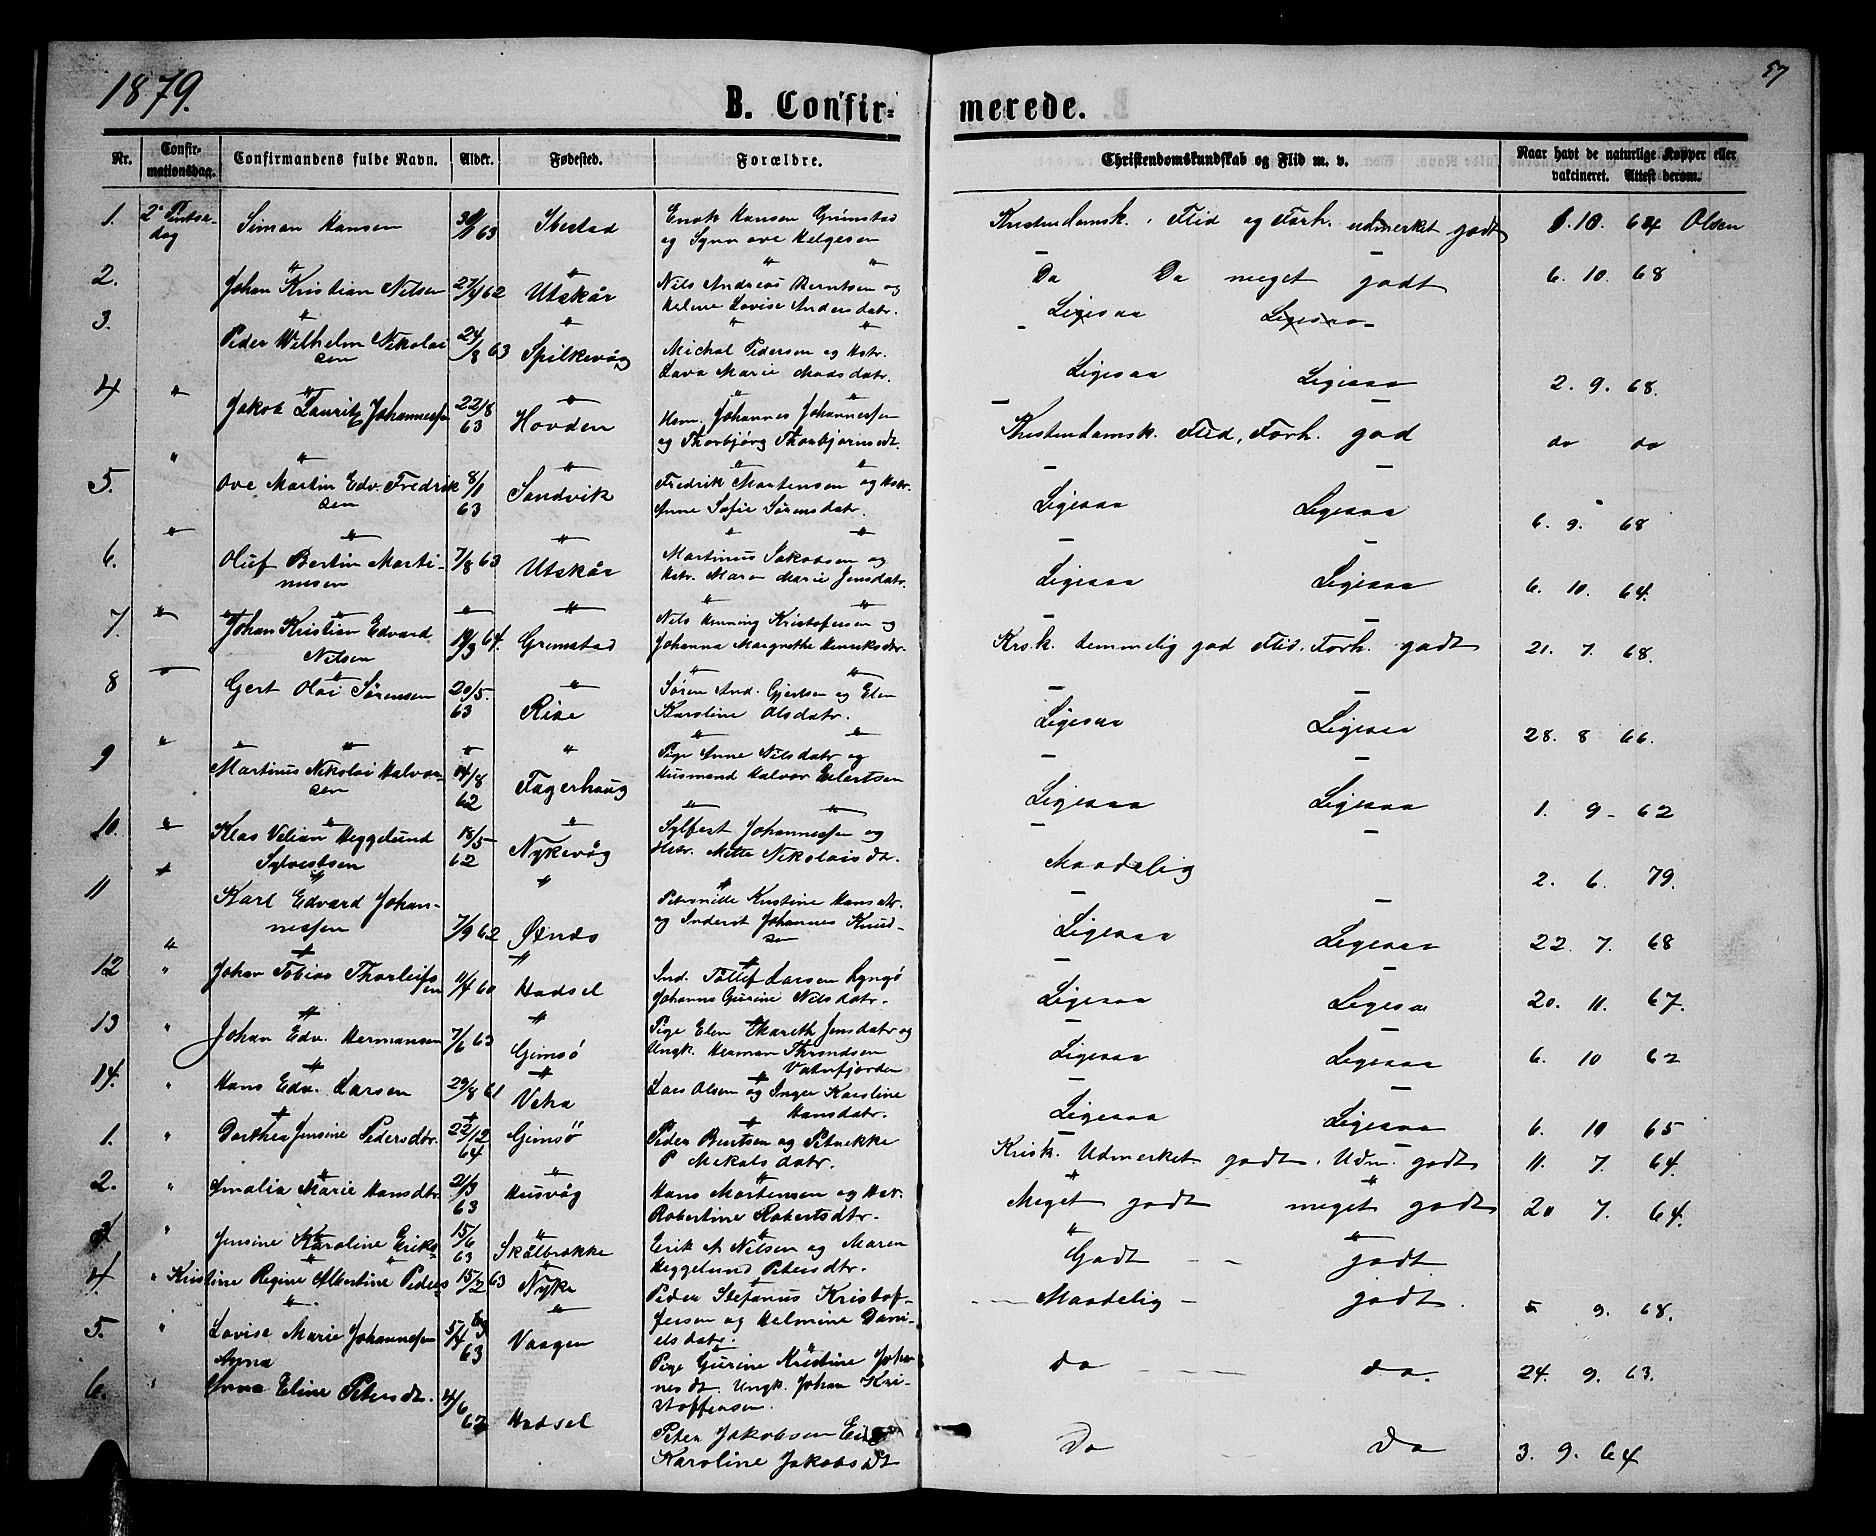 1879.
57
B. Confir-
merede.
Nr.
Confir-
mationsdag.
Confirmandens fulde Navn.
Alder.
Fødested.
Forældre.
Christendomskundskab og Flid m. v.
Naar havt de naturlige Kopper eller
vakcineret. Attest derom.
1. 2. Pintse- Siman Hansen 63 Ibestad Enok Hansen Grimstad Kristendomsk. Flid og Forh. udmerket godt 10. 64 Olsen
dag og Helgesen
2. Johan Kristian Nilsen 27/4 62 Utskår Nils Andreas Berntsen og Do Do meget godt 6. 10. 68
Helene Lovise Andersdatr. Ligesaa Ligesaa
3. Peder Wilhelm Nikolai 24/8 63 Spilkevåg Michal Pedersen og Hstr. Ligesaa Ligesaa 2. 9. 68.
sen Lava Marie Madsdatr.
4 Jakob Lauritz Johannessen 22/8 Hovden Johannes Johannessen Kristendomsk. Flid, Forh. god do do
63 og Thorbjörg Thorbjörnsdt.
5. Ove Martin Edv. Fredrik 8/1 Sandvik Fredrik Martensen og Hstr. Ligesaa Ligesaa 6. 9. 68
sen 63 Anne Sofie Sörensdatr.
6. Oluf Bertin Marti- 7/8 63 Utskår Martinus Jakobsen og Ligesaa Ligesaa 6. 10. 64.
nusen Hstr. Maren Marie Jensdatr.
7. Johan Kristian Edvard 19/3 64. Grimstad Nils Henning Kristofersen og Krsk. temmelig god Flid, Forh. godt 21. 7. 68.
Nilsen Johanna Margrethe Henriksdtr.
8 Gert Olai Sörensen 20/5. Rise Sören And. Gjertsen og Elen Ligesaa Ligesaa 28. 8 66.
63 Karoline Olsdatr.
9 Martinus Nikolai Halvor- 14/8 Fagerhaug Pige Anne Nilsdatr og Ligesaa Ligesaa 1. 9 - 62
sen 62 Husmand Halvor Eilertsen
10. Klas Vilian Heggelund 18/5 Nykevåg Sylfest Johannessen og Maadelig 2. 6. 79.
Sylvestsen 62 Hstr. Mette Nikolaisdt.
11 Karl Edvard Johan- 7/9 62 Petronille Kristine Hansdtr. Ligesaa Ligesaa 22. 7. 68
nessen og Inderst Johannes Knud-
sen
12 Johan Tobias Thorleifs 11/4 60 Hadsel Ind. Tollef Larsen Lyngö Ligesaa Ligesaa 20. 11. 67.
sen Johanna Gurine Nilsdatr.
13 Johan Edv. Hermansen 7/6 63 Gimsö Pige Elen Mareth Jensdatr og Ligesaa Ligesaa 6. 10 62
Ungk. Herman Throndsen
Vatnfjorden
14. Hans Edv. Larsen 29/8 61 Lars Olsen og Inger Karoline Ligesaa Ligesaa 6. 10 65
Hansdatr.
1. Dorthea Jensine Pedersdtr. 22/12 Gimsö Peder Bentsen og Petrikke Krisk. Udmerket godt. Udm. godt 11. 7. 64.
64 P Mekalsdatr.
2. Amalia Marie Hansdtr. 21/9 Husvåg Hans Mortensen og Hst. Meget godt meget godt 20 7. 64.
63 Robertine Robertsdtr.
3. Jensine Karoline Eriks- 15/6 Skålbrække Erik A Nilsen og Maren Godt - - godt
63 Heggelund Petersdtr.
4. Kristine Regine Albertine Peders 15/2 63 Nyke Peder Stefanus Kristof- - Maadelig - godt. 5 9. 68.
fersen og Helmine Dani-
elsdatr.
5. Lovise Marie Johannessen 5/4 63 Vaagen Pige Gurine Kristine Johan do do. 24. 9. 63.
nesdt. Ungk. Johan Kri-
stoffersen.
6. Anna Eline Petersdt. 4/6 62 Hadsel Peter Jakobsen Do Do 3. 9. 64
Karoline Jakobsdt